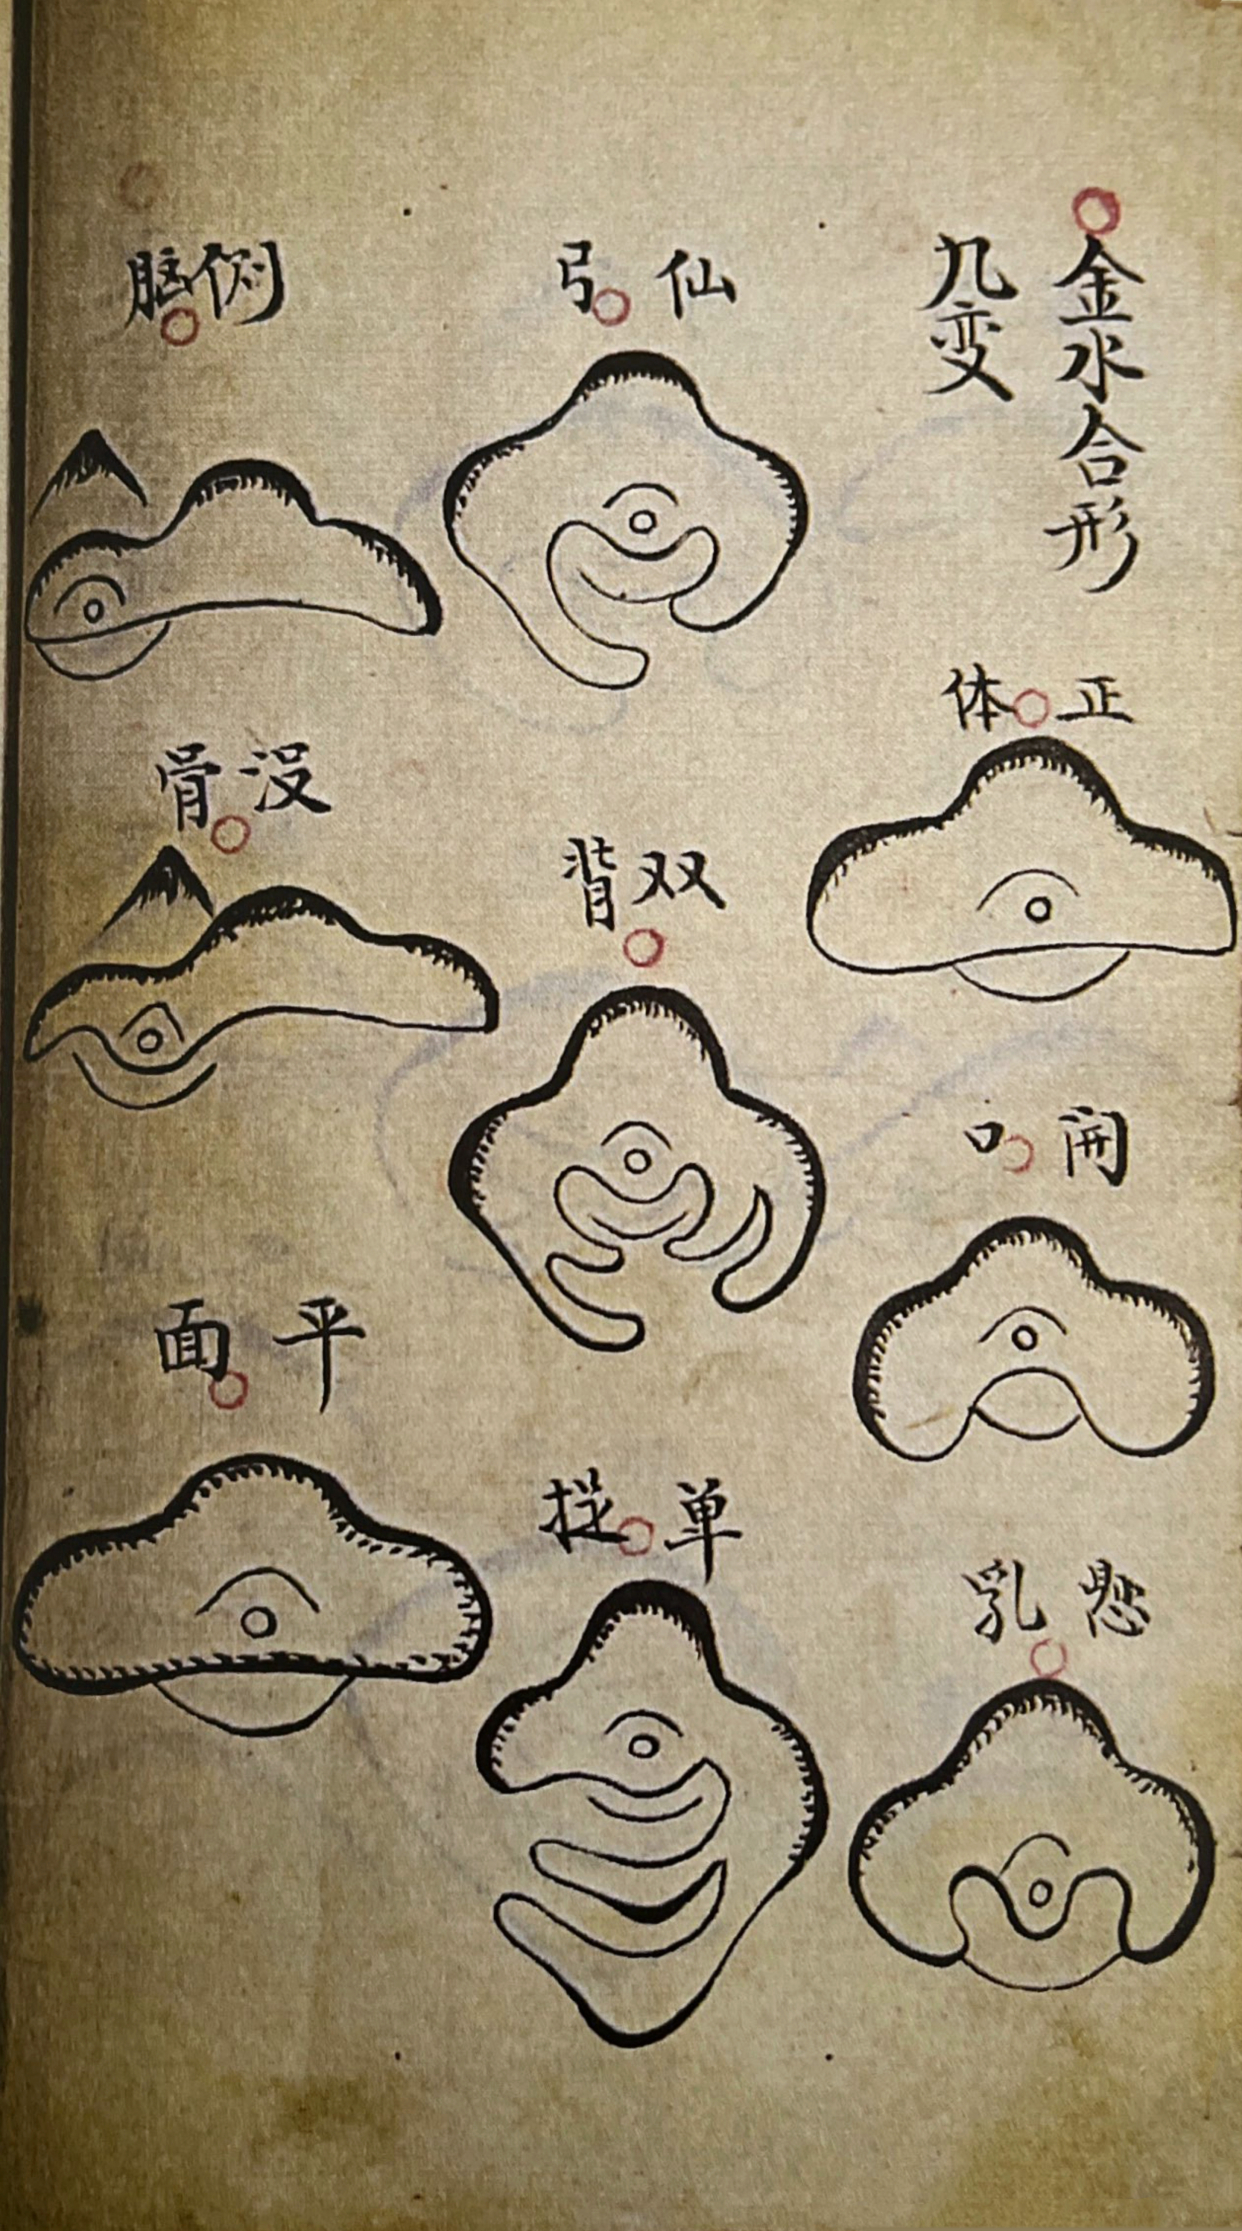 金水合形
九变
正体
开口
悬乳
仙弓
双背
单
侧脑
没骨
平面